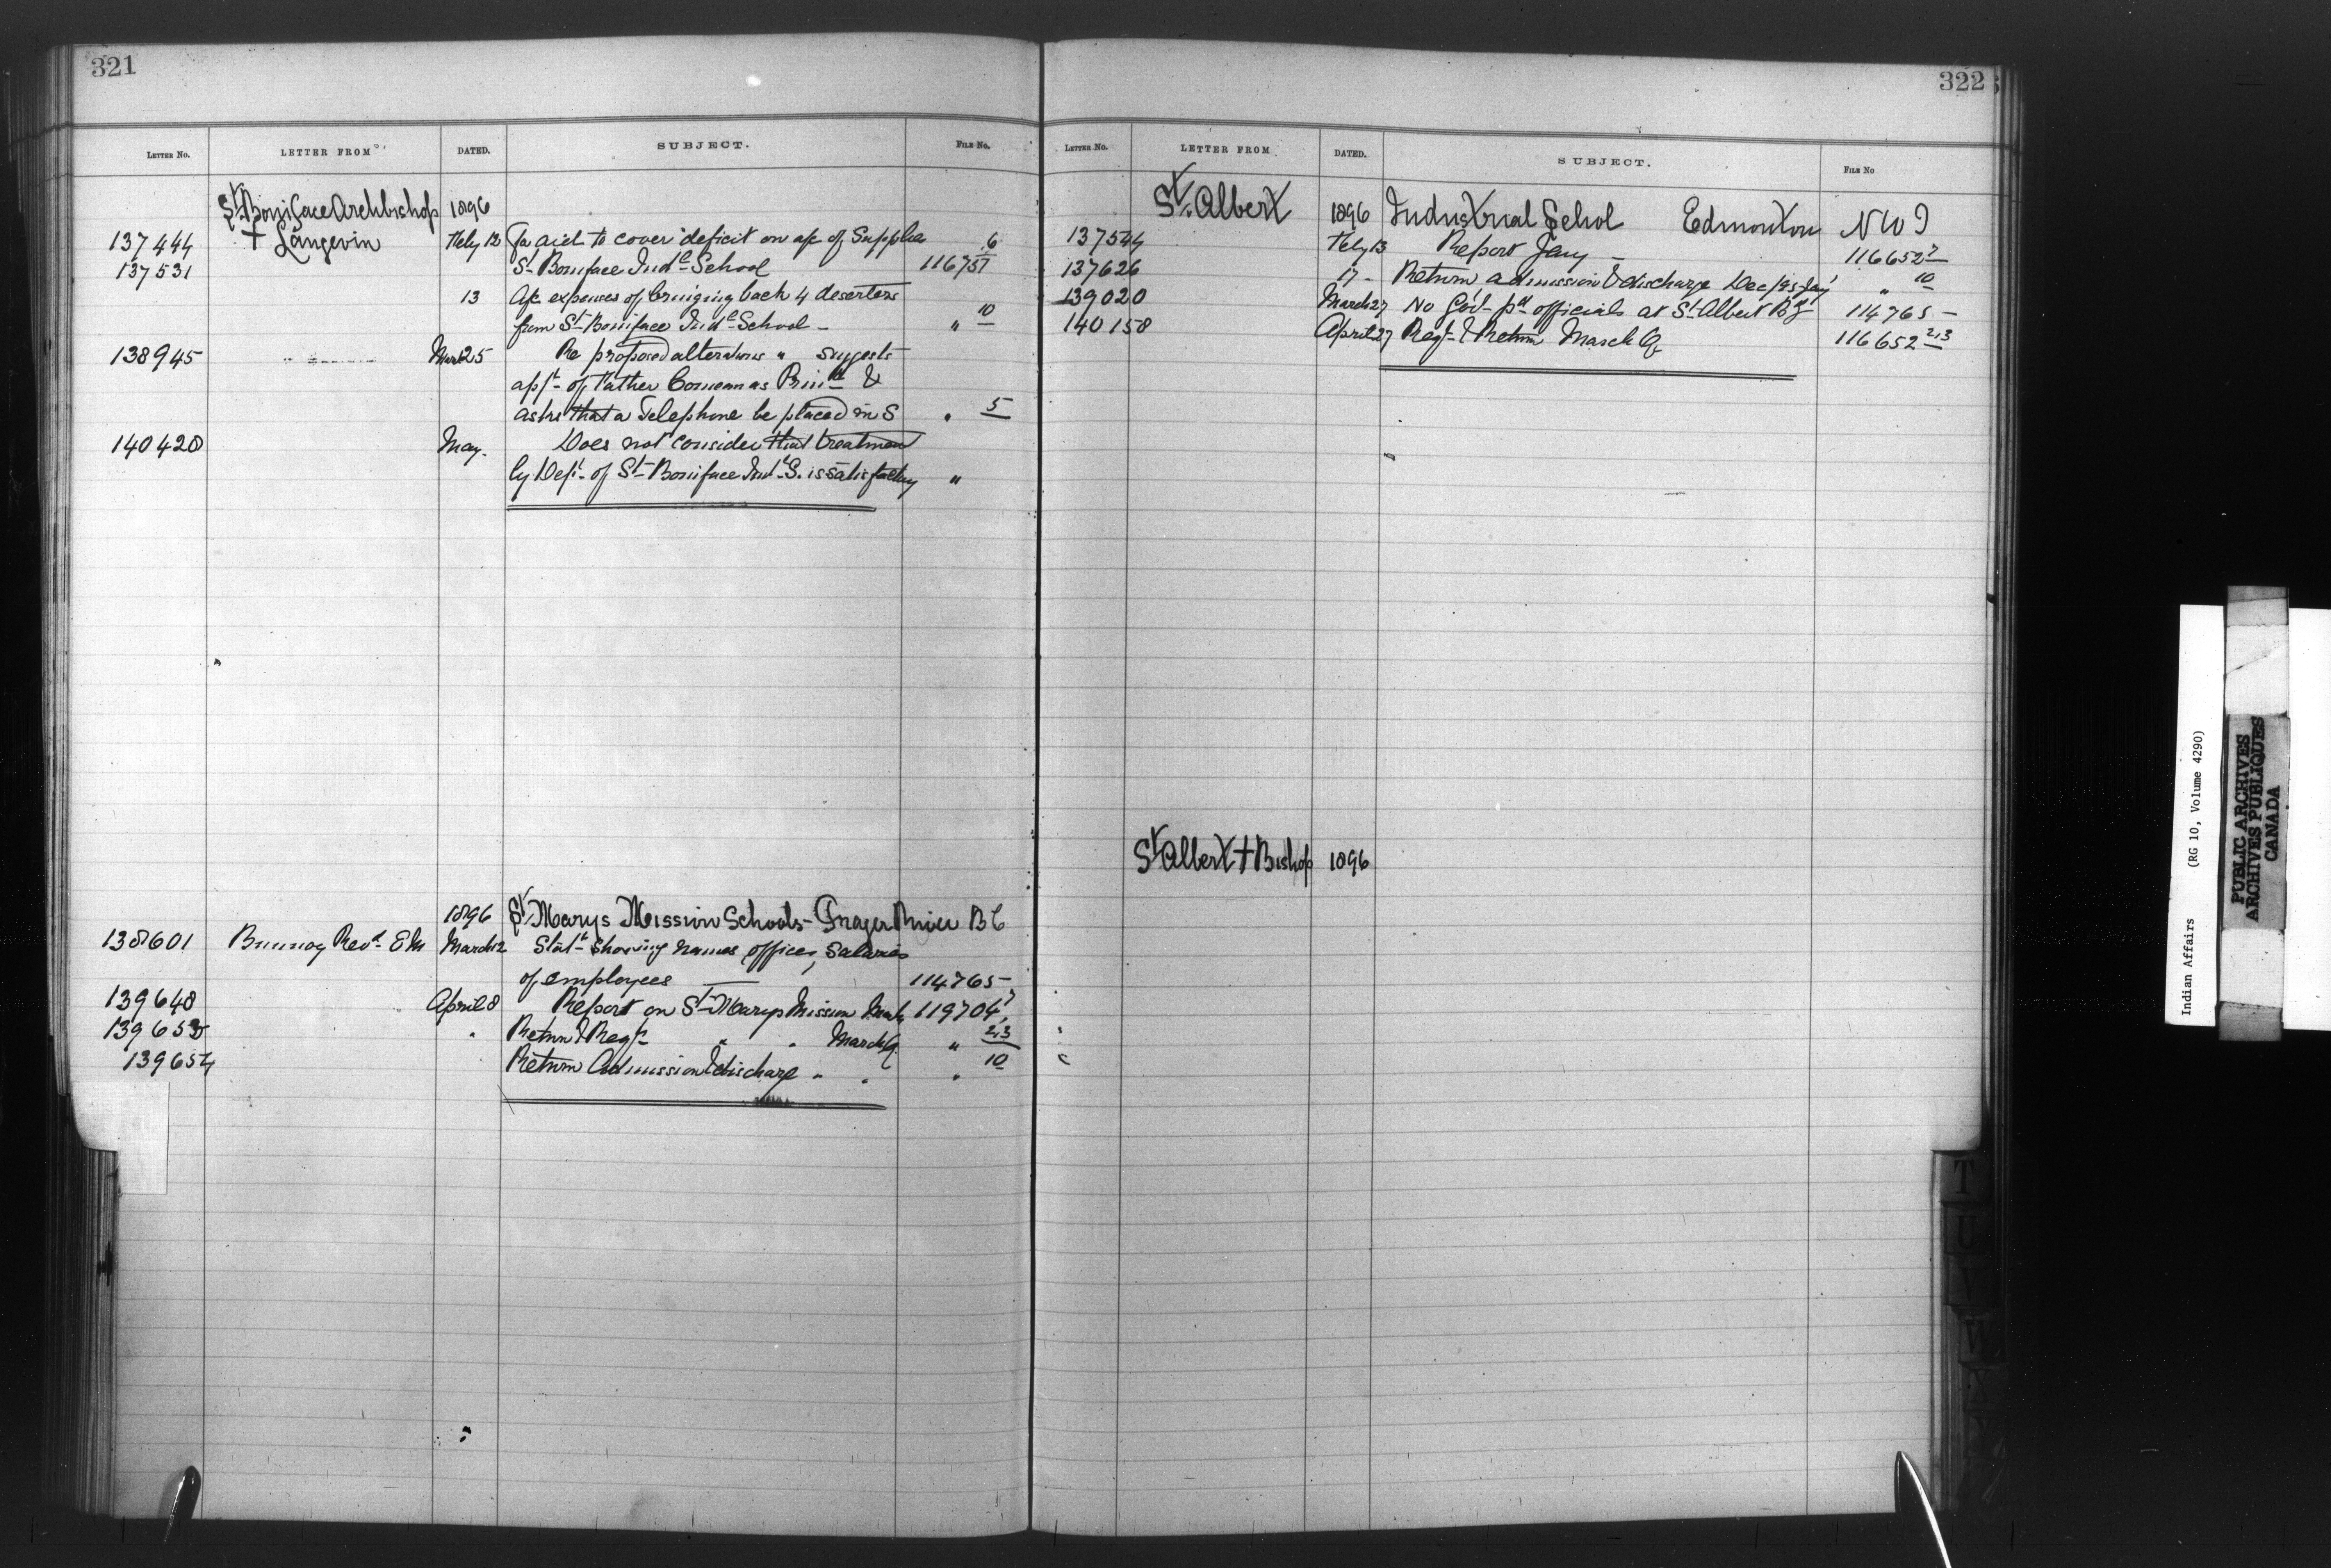 321
LETTER No. LETTER FROM DATED. SUBJECT. FILE No.
St Boniface Archbishop 1896
137444 † Langevin Feby 12 Fr aid to cover deficit on a/c of Supplies 6
137531 St Boniface Indl School 116751
13 A/c expenses of bringing back 4 deserters
from St Boniface Indl School - " 10
138945 " Mar 25 Re proposed alterations " suggests
appt of Father Comeau as Prinl &
asks that a Telephone be placed in S " 5
140428 May. Does not consider that treatment
by Dept of St Boniface Indl S. is satisfactory "
1896 St Marys Mission Schools - Frazer River B C
138601 Revd E M March 12 Statt showing names, offices, salaries
of employees 114765 -
139648 April 8 Report on St Marys Mission March 119704 7
139653 " Return & Regr " " March Q. " 2,3
139654 Return Admission & discharge " " " 10
322
LETTER No. LETTER FROM DATED. SUBJECT. FILE No
St. Albert 1896 Industrial School Edmonton N W T
137544 Feby 13 Report Jany - 116652 7
137626 17 - Return admission & discharge Dec/95 - Jany " 10
139020 March 27 No Govt pd officials at St Albert 114765 -
140158 April 27 Regr & Return March Q. 116652 2,3
St Albert † Bishop 1896
T
U
V
W
X
Y
Indian Affairs (RG 10, Volume 4290)
PUBLIC ARCHIVES
ARCHIVES PUBLIQUES
CANADA